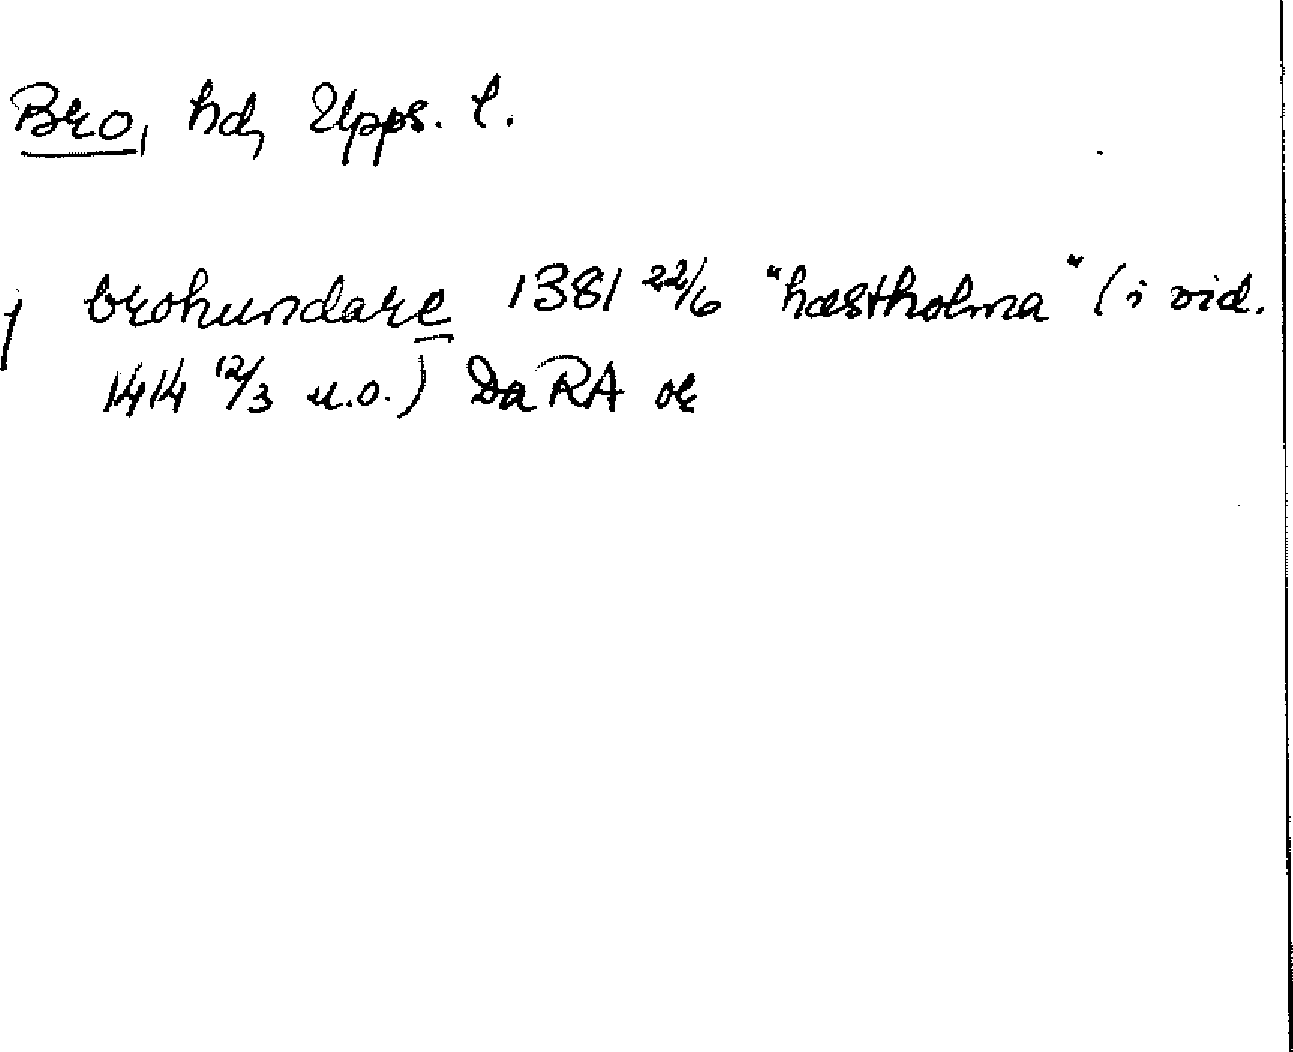 Bro, hd, Upps. l.
j brohundare 1381 22/6 "hæstholma" (i vid.
1414 12/3 u.o.) Da RA or